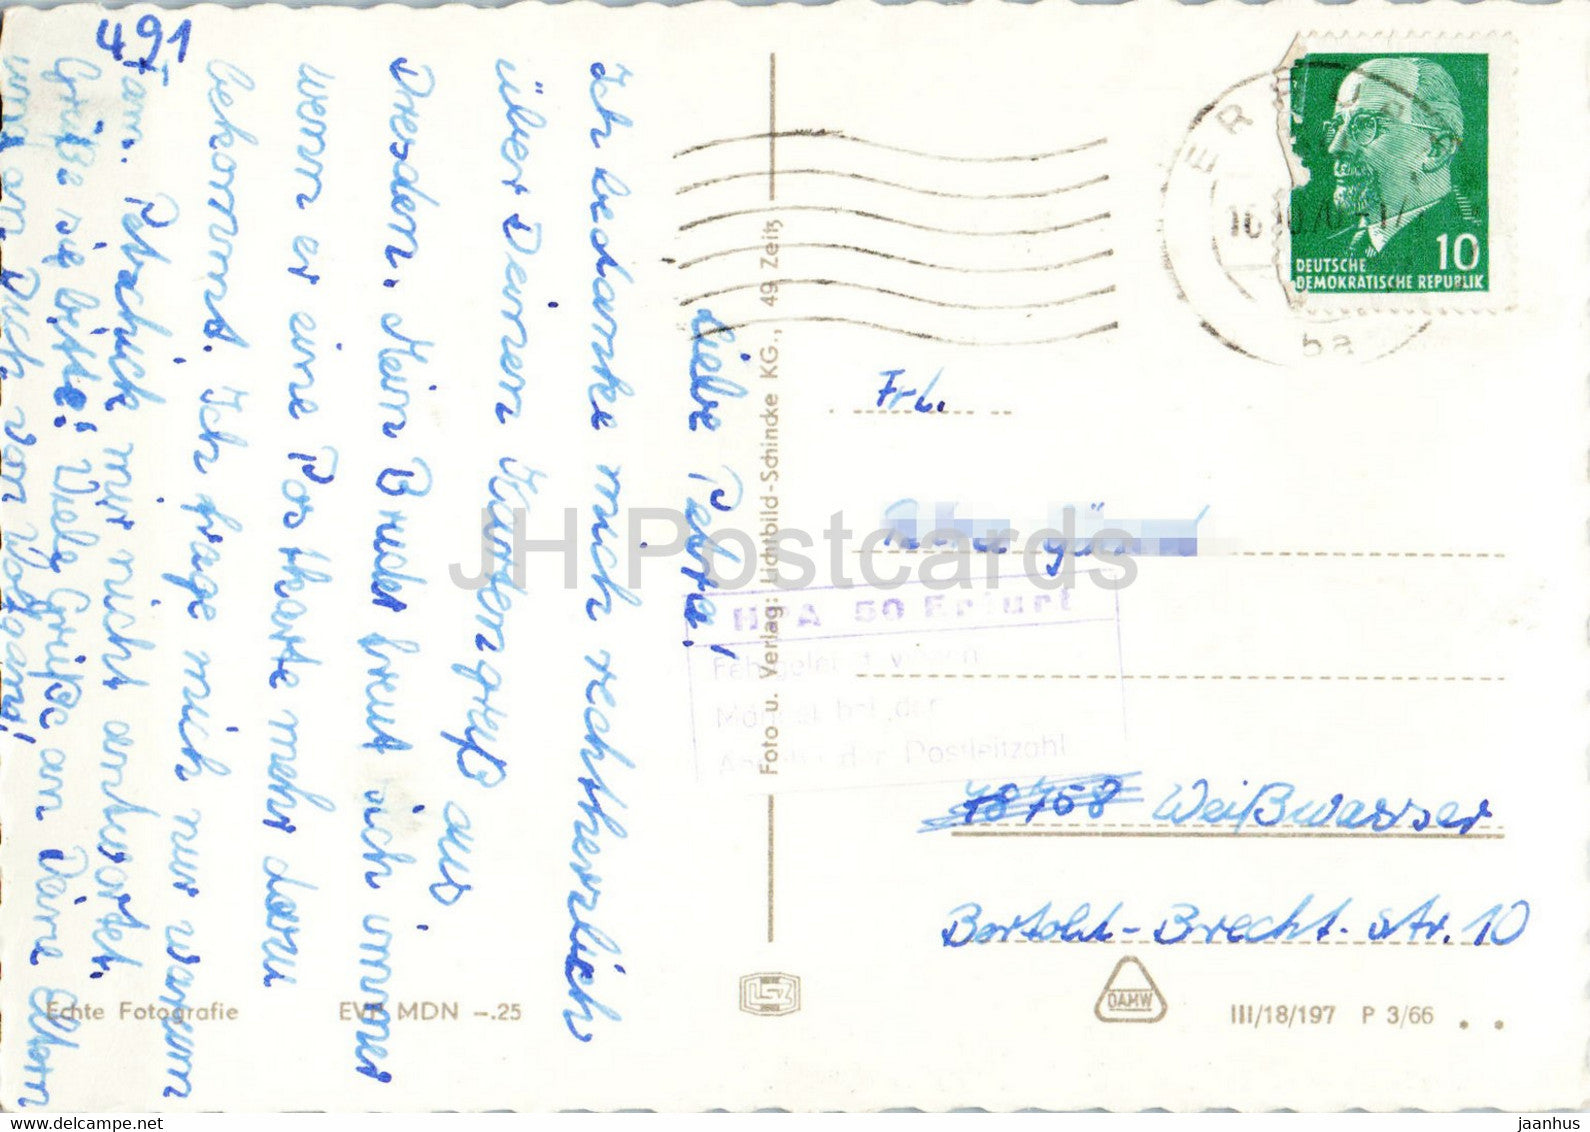 491
Liebe Petra!
Ich bedanke mich rechtherzlich
über Deinen Kartengruß aus
Dresden. Mein Bruder freut sich immer
wenn er eine Postkarte mehr dazu
bekommt. Ich frage mich nur warum
Fam. Petschick mir nicht antwortet.
Grüße sie bitte! Viele Grüße an Deine Eltern
und an Dich von Wolfgang!
Foto u. Verlag: Lichtbild-Schincke KG., 49 Zeitz
Echte Fotografie
EVP MDN -.25
ERFURT
ba
DEUTSCHE
DEMOKRATISCHE REPUBLIK
10
Frl.
HPA 50 Erfurt
Fehlgeleitet wegen
Mängel bei der
Angabe der Postleitzahl
Weißwasser
Bertold-Brecht-Str. 10
DAMW
III/18/197 P 3/66
JH Postcards
www.delcampe.net
jaanhus